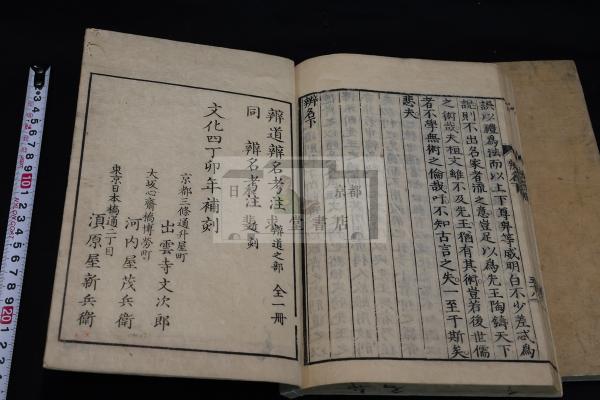 誤以禮爲據而以上下尊卑等威明白不少差忒爲
說則不出名家者流之意豈足以爲先王陶鑄天下
之術哉夫祖文雖不及先王猶有其術豈若後世儒
者不學無術之倫哉吁不知古言之失一至于斯矣
悲夫
辨名下
辨道辨名考注 辨道之部 全一冊
同 辨名考注 刻
文化四丁卯年補刻
京都三條通升屋町
出雲寺文次郎
大坂心齋橋博労町
河内屋茂兵衛
東京日本橋通二丁目
須原屋新兵衛
日本 京都
悲求堂書店